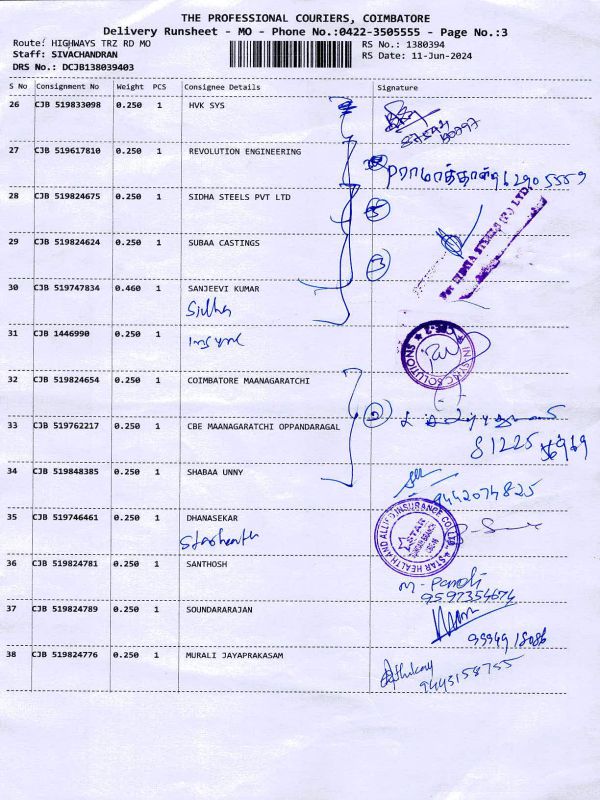 THE PROFESSIONAL COURIERS, COIMBATORE
Delivery Runsheet - MO - Phone No.:0422-3505555 - Page No.:3
Route: HIGHWAYS TRZ RD MO RS No.: 1380394
Staff: SIVACHANDRAN RS Date: 11-Jun-2024
DRS No.: DCJB138039403
S No Consignment No Weight PCS Consignee Details Signature
26 CJB 519833098 0.250 1 HVK SYS
27 CJB 519617810 0.250 1 REVOLUTION ENGINEERING
28 CJB 519824675 0.250 1 SIDHA STEELS PVT LTD
29 CJB 519824624 0.250 1 SUBAA CASTINGS
3
30 CJB 519747834 0.460 1 SANJEEVI KUMAR
Sidha
31 CJB 1446990 0.250 1
32 CJB 519824654 0.250 1 COIMBATORE MAANAGARATCHI
2
33 CJB 519762217 0.250 1 CBE MAANAGARATCHI OPPANDARAGAL
81225
34 CJB 519848385 0.250 1 SHABAA UNNY
9442074825
35 CJB 519746461 0.250 1 DHANASEKAR
Starhealth
STAR HEALTH AND ALLIED INSURANCE CO. LTD.
STAR
36 CJB 519824781 0.250 1 SANTHOSH
M. Pandi
9597354674
37 CJB 519824789 0.250 1 SOUNDARARAJAN
38 CJB 519824776 0.250 1 MURALI JAYAPRAKASAM
9443158755